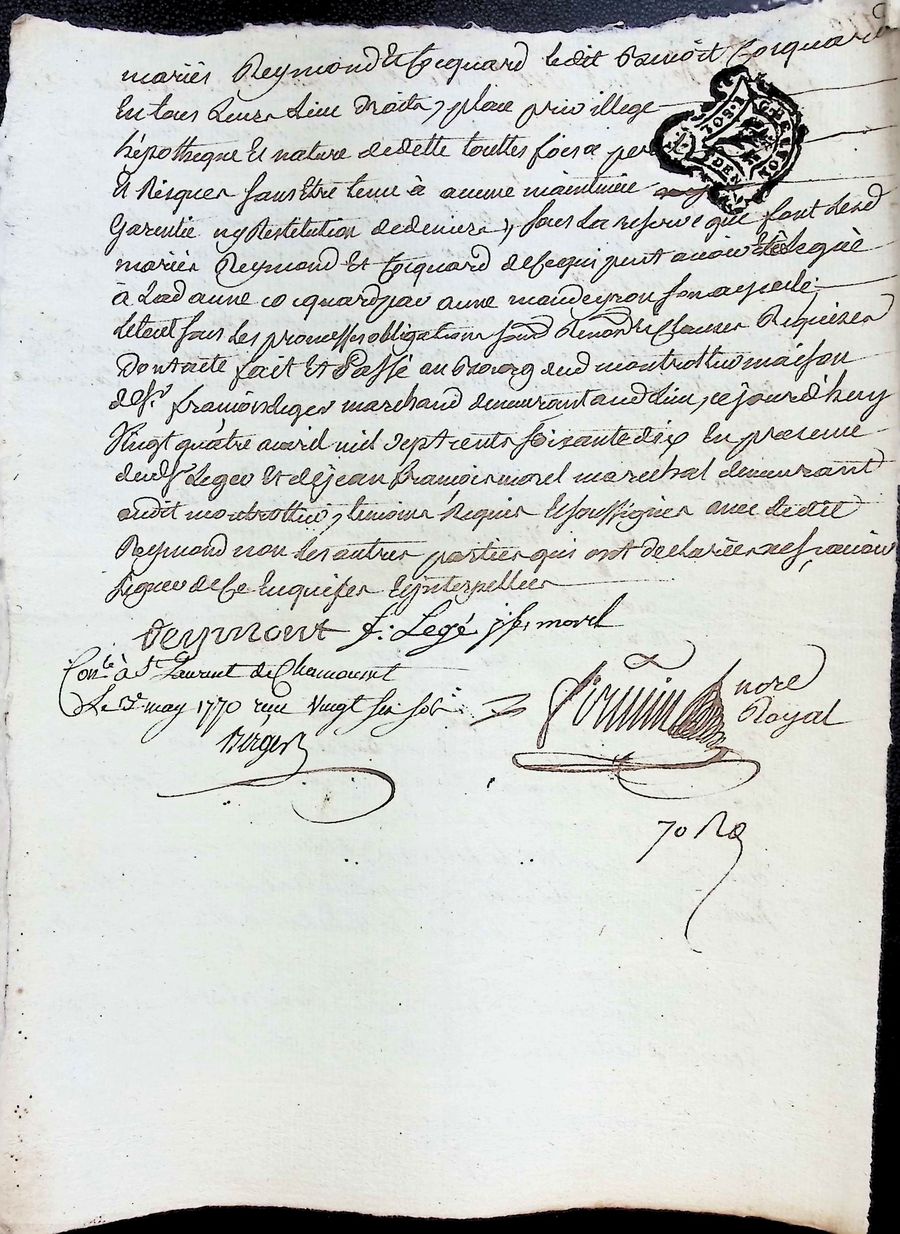 mariés Reymond Et Cocquard ledit Benoit Cocquard
En tous Leurs Lieu Droits, place privillege
hépotheque Et nature dedette touttes fois a per
Et Risques sans Etre tenu à aucune maintenüe
Garentie ny Restitution dedeniers, sous La reserve que font Lesd
mariés Reymond Et Cocquard de Cequi peut avoir Eté Legué
à Lad anne Cocquard par anne
Letout sous Les promesses obligations Renon Clauses Requises
Dont acte fait Et Passé au Bourg dud montrottier maison
de Sr françois Leger marchand demeurant aud Lieu, cejourd'huy
Vingt quatre avril mil Sept cents soixante dix En presence
dud Sr Leger Et de jean françois morel marechal demeurant
audit montrottier, temoins Requis Et soussignés avec Ledit
Reymond non Les autres parties qui ont declarées ne sçavoir
signer de Ce Enquises Et jnterpellées
Reymont f. Legé j fs morel
Conlé à St Laurent de Chamousset
Le 3e may 1770 reçu Vingt six sols
Berger
nore
Royal
70 Rd